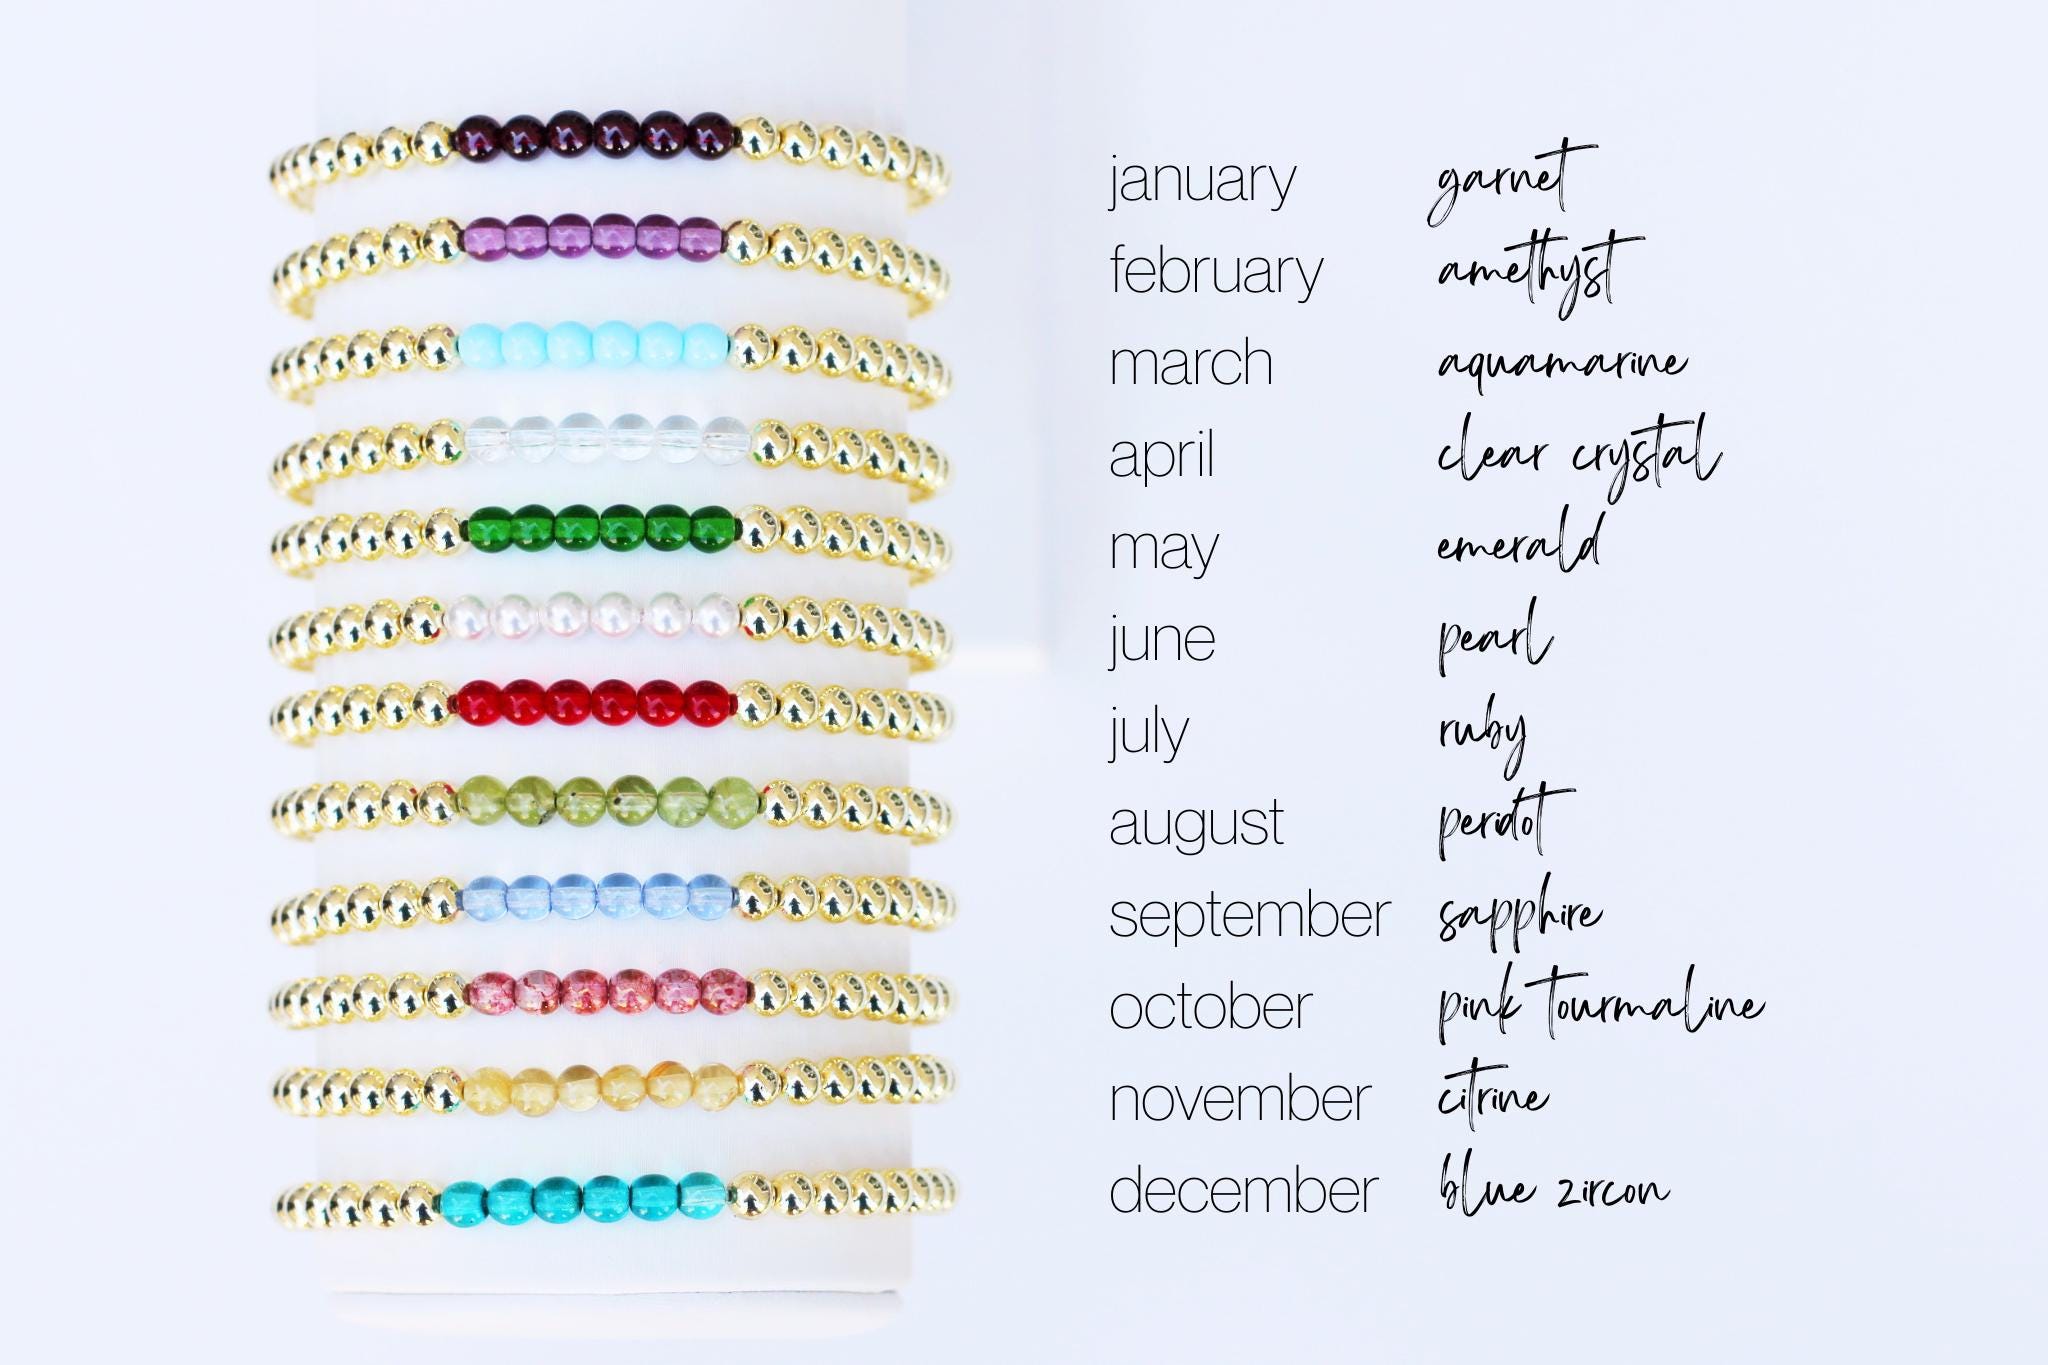 january garnet
february amethyst
march aquamarine
april clear crystal
may emerald
june pearl
july ruby
august peridot
september sapphire
october pink tourmaline
november citrine
december blue zircon